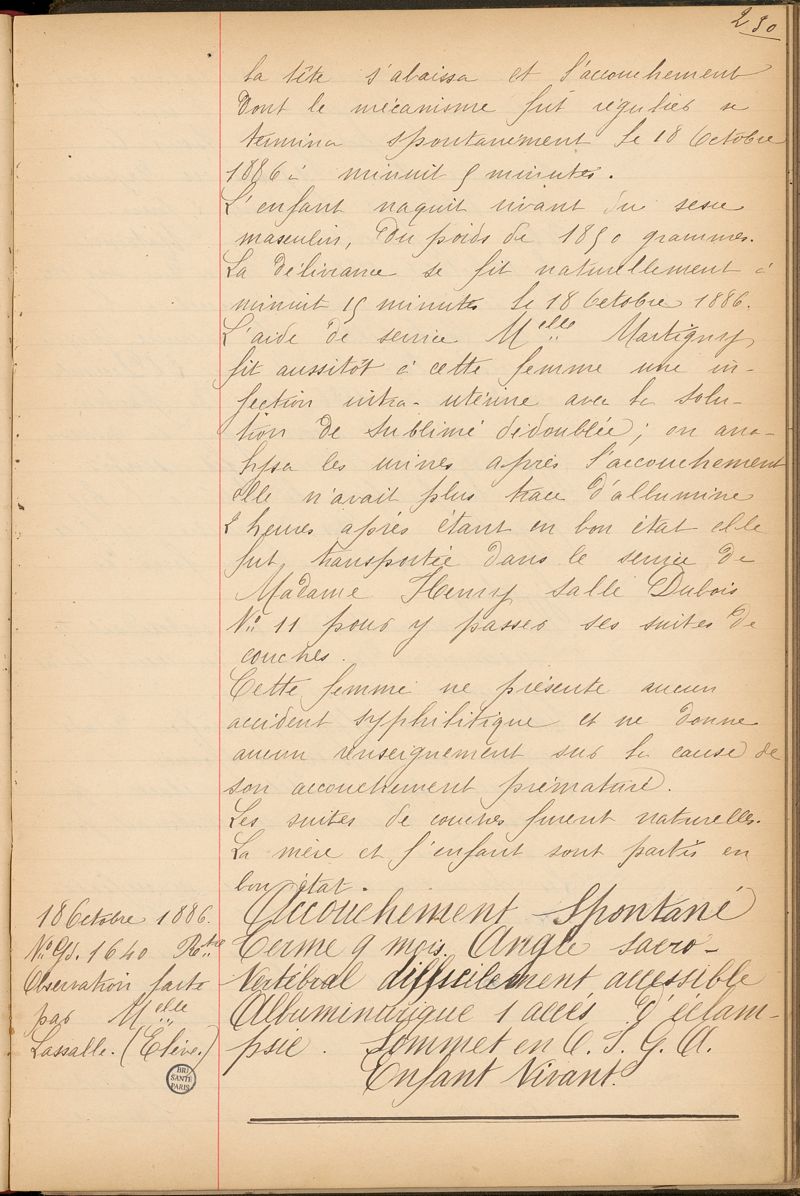 230
La tête s'abaissa et l'accouchement
dont le mécanisme fut régulier se
termina spontanément le 18 Octobre
1886 à minuit 5 minutes.
L'enfant naquit vivant du sexe
masculin, du poids de 1850 grammes.
La délivrance se fit naturellement à
minuit 15 minutes le 18 Octobre 1886.
L'aide de service Melle Martigny
fit aussitôt à cette femme une in-
jection intra-utérine avec la solu-
tion de sublimé dédoublée; on ana-
lysa les urines après l'accouchement
elle n'avait plus trace d'albumine
2 heures après étant en bon état elle
fut transportée dans le service de
Madame Henry salle Dubois
No 11 pour y passer ses suites de
couches.
Cette femme ne présente aucun
accident syphilitique et ne donne
aucun renseignement sur la cause de
son accouchement prématuré.
Les suites de couches furent naturelles.
La mère et l'enfant sont partis en
bon état.
18 Octobre 1886.
No Gd. 1640 Rtre
Observation faite
par Melle
Lassalle. (Elève.)
Accouchement Spontané
Terme 9 mois. Angle sacro-
Vertébral difficilement accessible
Albuminurique 1 accès d'éclam-
psie. Sommet en O.I.G.A.
Enfant Vivant.
BIU
SANTE
PARIS